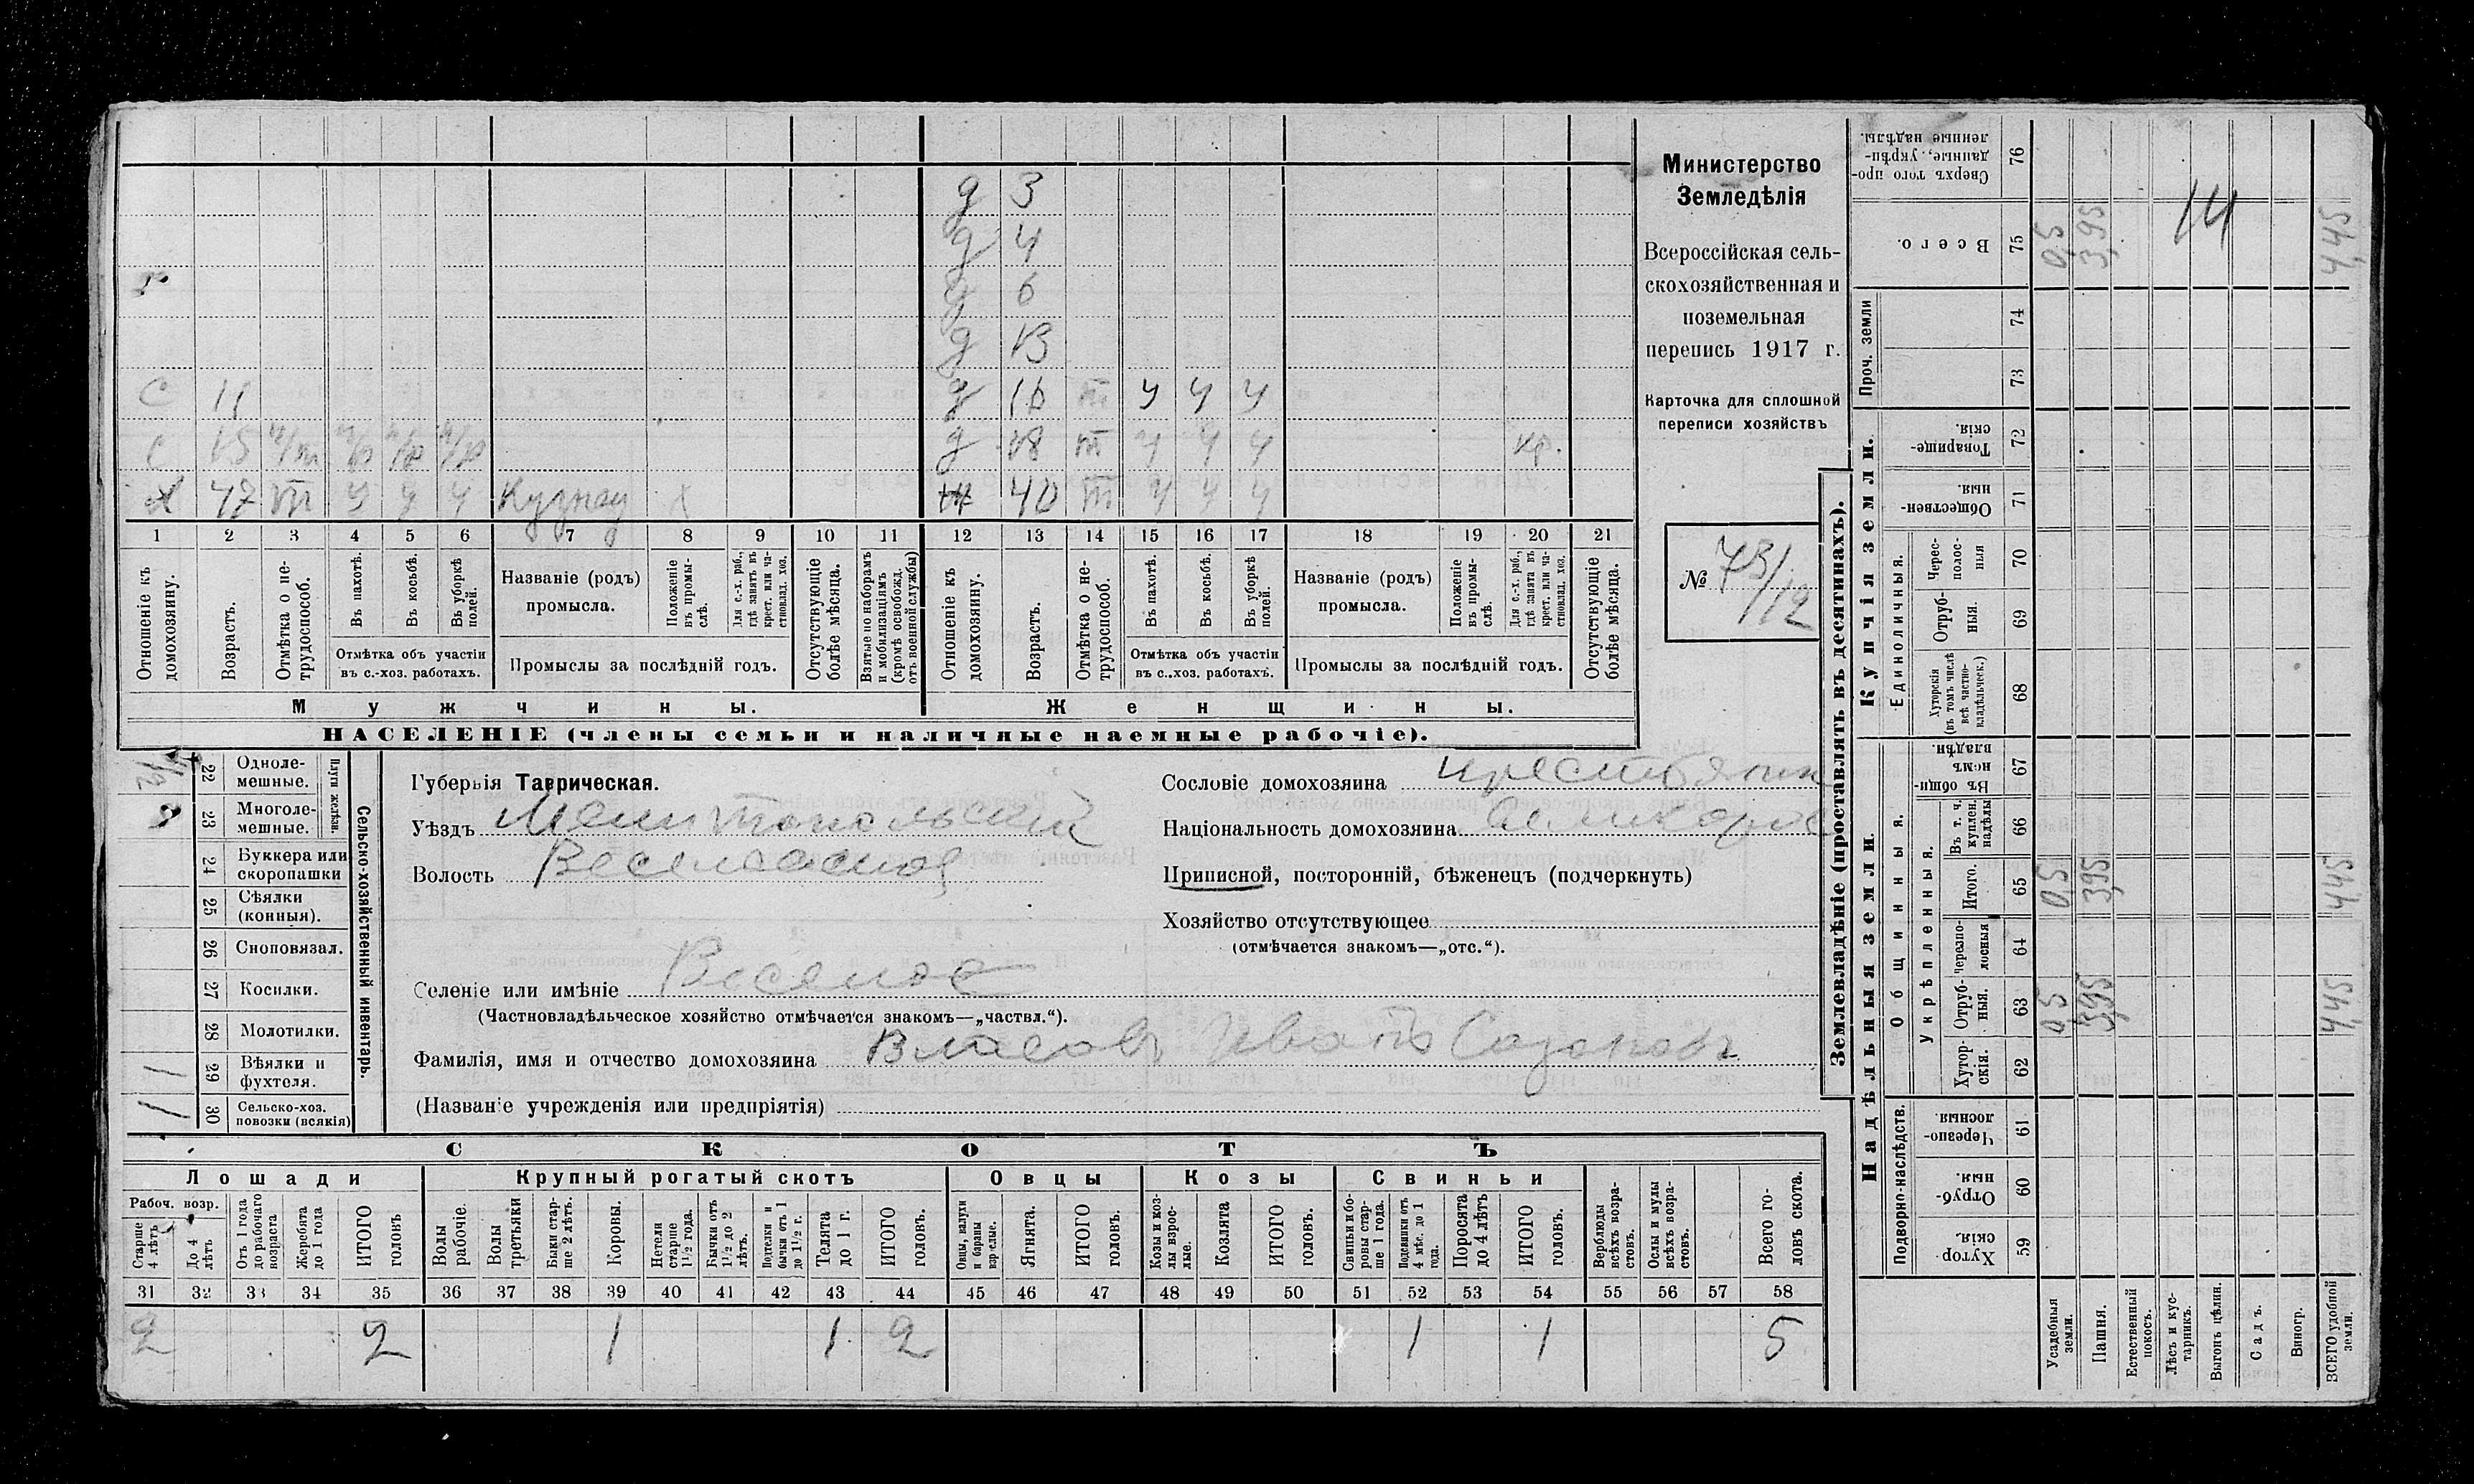 д 3
д 4
6
д 13
С 11 д 16 т ч ч ч
С 15 д 18 т ч ч ч кр.
Х 47 т ч ч ч Кузнец Х 40 т ч ч ч
1 2 3 4 5 6 7 8 9 10 11 12 13 14 15 16 17 18 19 20 21
Отношеніе къ домохозяину.
Возрастъ.
Отмѣтка о не-трудоспособ.
Въ пахотѣ.
Въ косьбѣ.
Въ уборкѣ полей.
Отмѣтка объ участіи въ с.-хоз. работахъ.
Названіе (родъ) промысла.
Положеніе въ промы-слѣ.
Для с.-х. раб., гдѣ занятъ въ крест. или ча-стновлад. хоз.
Промыслы за послѣдній годъ.
Отсутствующіе болѣе мѣсяца.
Взятые по наборамъ и мобилизаціямъ (кромѣ освобожд. отъ военной службы)
Отношеніе къ домохозяину.
Возрастъ.
Отмѣтка о не-трудоспособ.
Въ пахотѣ.
Въ косьбѣ.
Въ уборкѣ полей.
Отмѣтка объ участіи въ с.-хоз. работахъ.
Названіе (родъ) промысла.
Положеніе въ промы-слѣ.
Для с.-х. раб., гдѣ занята въ крест. или ча-стновлад. хоз.
Промыслы за послѣдній годъ.
Отсутствующіе болѣе мѣсяца.
Мужчины. Женщины.
НАСЕЛЕНІЕ (члены семьи и наличные наемные рабочіе).
Министерство
Земледѣлія
Всероссійская сель-
скохозяйственная и
поземельная
перепись 1917 г.
Карточка для сплошной
переписи хозяйствъ
№ 73/12
22 Одноле-мешные.
23 Многоле-мешные.
Плуги желѣзн.
24 Буккера или скоропашки
25 Сѣялки (конныя).
26 Сноповязал.
27 Косилки.
28 Молотилки.
1 29 Вѣялки и фухтеля.
1 30 Сельско-хоз. повозки (всякія)
Сельско-хозяйственный инвентарь.
Губернія Таврическая.
Уѣздъ Мелитопольскій
Волость Веселовской
Селеніе или имѣніе Веселое
(Частновладѣльческое хозяйство отмѣчается знакомъ—„частвл.“).
Фамилія, имя и отчество домохозяина Власовъ Иванъ Сазоновъ
(Названіе учрежденія или предпріятія)
Сословіе домохозяина крестьянин
Національность домохозяина великорос
Приписной, посторонній, бѣженецъ (подчеркнуть)
Хозяйство отсутствующее
(отмѣчается знакомъ—„отс.“).
СКОТЪ
Лошади Крупный рогатый скотъ Овцы Козы Свиньи
Рабоч. возр.
Старше 4 лѣтъ
До 4 лѣтъ
Отъ 1 года до рабочаго возраста
Жеребята до 1 года
ИТОГО головъ
Волы рабочіе.
Волы третьяки
Быки стар-ше 2 лѣтъ.
Коровы.
Нетели старше 1½ года.
Бычки отъ 1½ до 2 лѣтъ.
Подтелки и бычки отъ 1 до 1½ г.
Телята до 1 г.
ИТОГО головъ.
Овцы, валухи и бараны взрослые.
Ягнята.
ИТОГО головъ.
Козы и коз-лы взрос-лые.
Козлята
ИТОГО головъ.
Свиньи и бо-ровы стар-ше 1 года.
Подсвинки отъ 4 мѣс. до 1 года.
Поросята до 4 лѣтъ
ИТОГО головъ.
Верблюды всѣхъ возра-стовъ.
Ослы и мулы всѣхъ возра-стовъ.
Всего го-ловъ скота.
31 32 33 34 35 36 37 38 39 40 41 42 43 44 45 46 47 48 49 50 51 52 53 54 55 56 57 58
2 2 1 1 2 1 1 5
Землевладѣніе (проставлять въ десятинахъ).
Надѣльныя земли. Купчія земли. Проч. земли
Подворно-наслѣдств. Общинныя. Укрѣпленныя. Единоличныя.
Сверхъ того про-данные, укрѣп-ленные надѣлы. 76
Всего. 75 0,5 3,95 14 4,45
74
73
Товарище-скія. 72
Обществен-ныя. 71
Черес-полос-ныя 70
Отруб-ныя. 69
Хуторскія (въ томъ числѣ всѣ частно-владѣльческ.) 68
Въ общин-номъ владѣн. 67
Въ т. ч. куплен. надѣлы 66
Итого. 65 0,5 3,95 4,45
Черезпо-лосныя 64
Отруб-ныя. 63 0,5 3,95 4,45
Хутор-скія. 62
Черезпо-лосныя 61
Отруб-ныя. 60
Хутор-скія. 59
Усадебныя земли.
Пашня.
Естественный покосъ.
Лѣсъ и кус-тарникъ.
Выгонъ цѣлин.
Садъ.
Виногр.
ВСЕГО удобной земли.